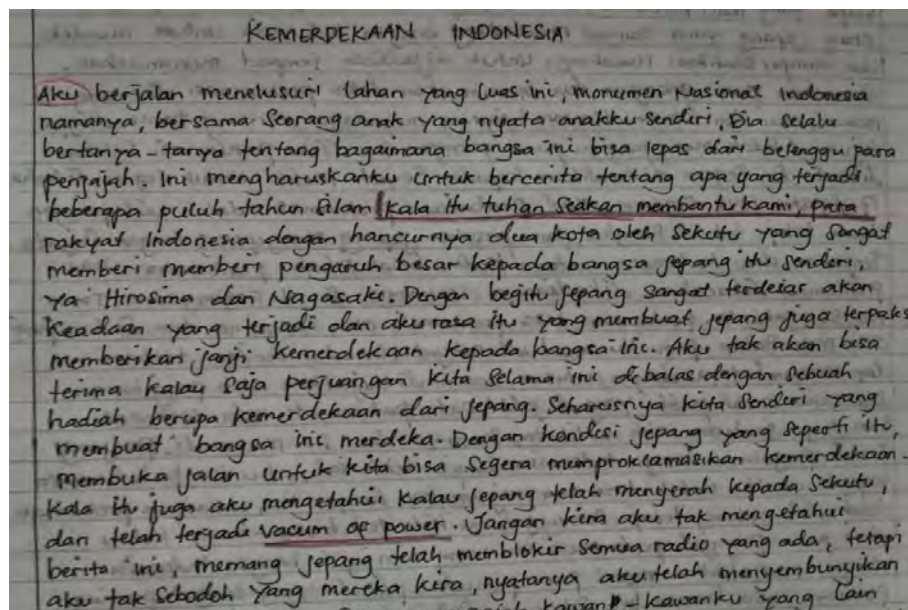 KEMERDEKAAN INDONESIA
Aku berjalan menelusuri lahan yang luas ini, monumen Nasional Indonesia
namanya, bersama Seorang anak yang nyata anakku sendiri, Dia selalu
bertanya-tanya tentang bagaimana bangsa ini bisa lepas dari belenggu para
penjajah. Ini mengharuskanku untuk bercerita tentang apa yang terjadi
beberapa puluh tahun silam kala itu tuhan seakan membantu kami, para
rakyat Indonesia dengan hancurnya dua kota oleh sekutu yang sangat
memberi memberi pengaruh besar kepada bangsa jepang itu sendiri,
ya Hirosima dan Nagasaki. Dengan begitu jepang sangat terdesar akan
keadaan yang terjadi dan aku rasa itu yang membuat jepang juga terpaks
memberikan janji kemerdekaan kepada bangsa ini. Aku tak akan bisa
terima kalau saja perjuangan kita selama ini dibalas dengan sebuah
hadiah berupa kemerdekaan dari jepang. Seharusnya kita sendiri yang
membuat bangsa ini merdeka. Dengan kondisi jepang yang seperti itu,
membuka jalan untuk kita bisa segera memproklamasikan kemerdekaan.
Kala itu juga aku mengetahui kalau jepang telah menyerah kepada sekutu,
dan telah terjadi vacum of power. Jangan kira aku tak mengetahui
berita ini, memang jepang telah memblokir semua radio yang ada, tetapi
aku tak sebodoh yang mereka kira, nyatanya aku telah menyembunyikan
kawan-kawanku yang lain